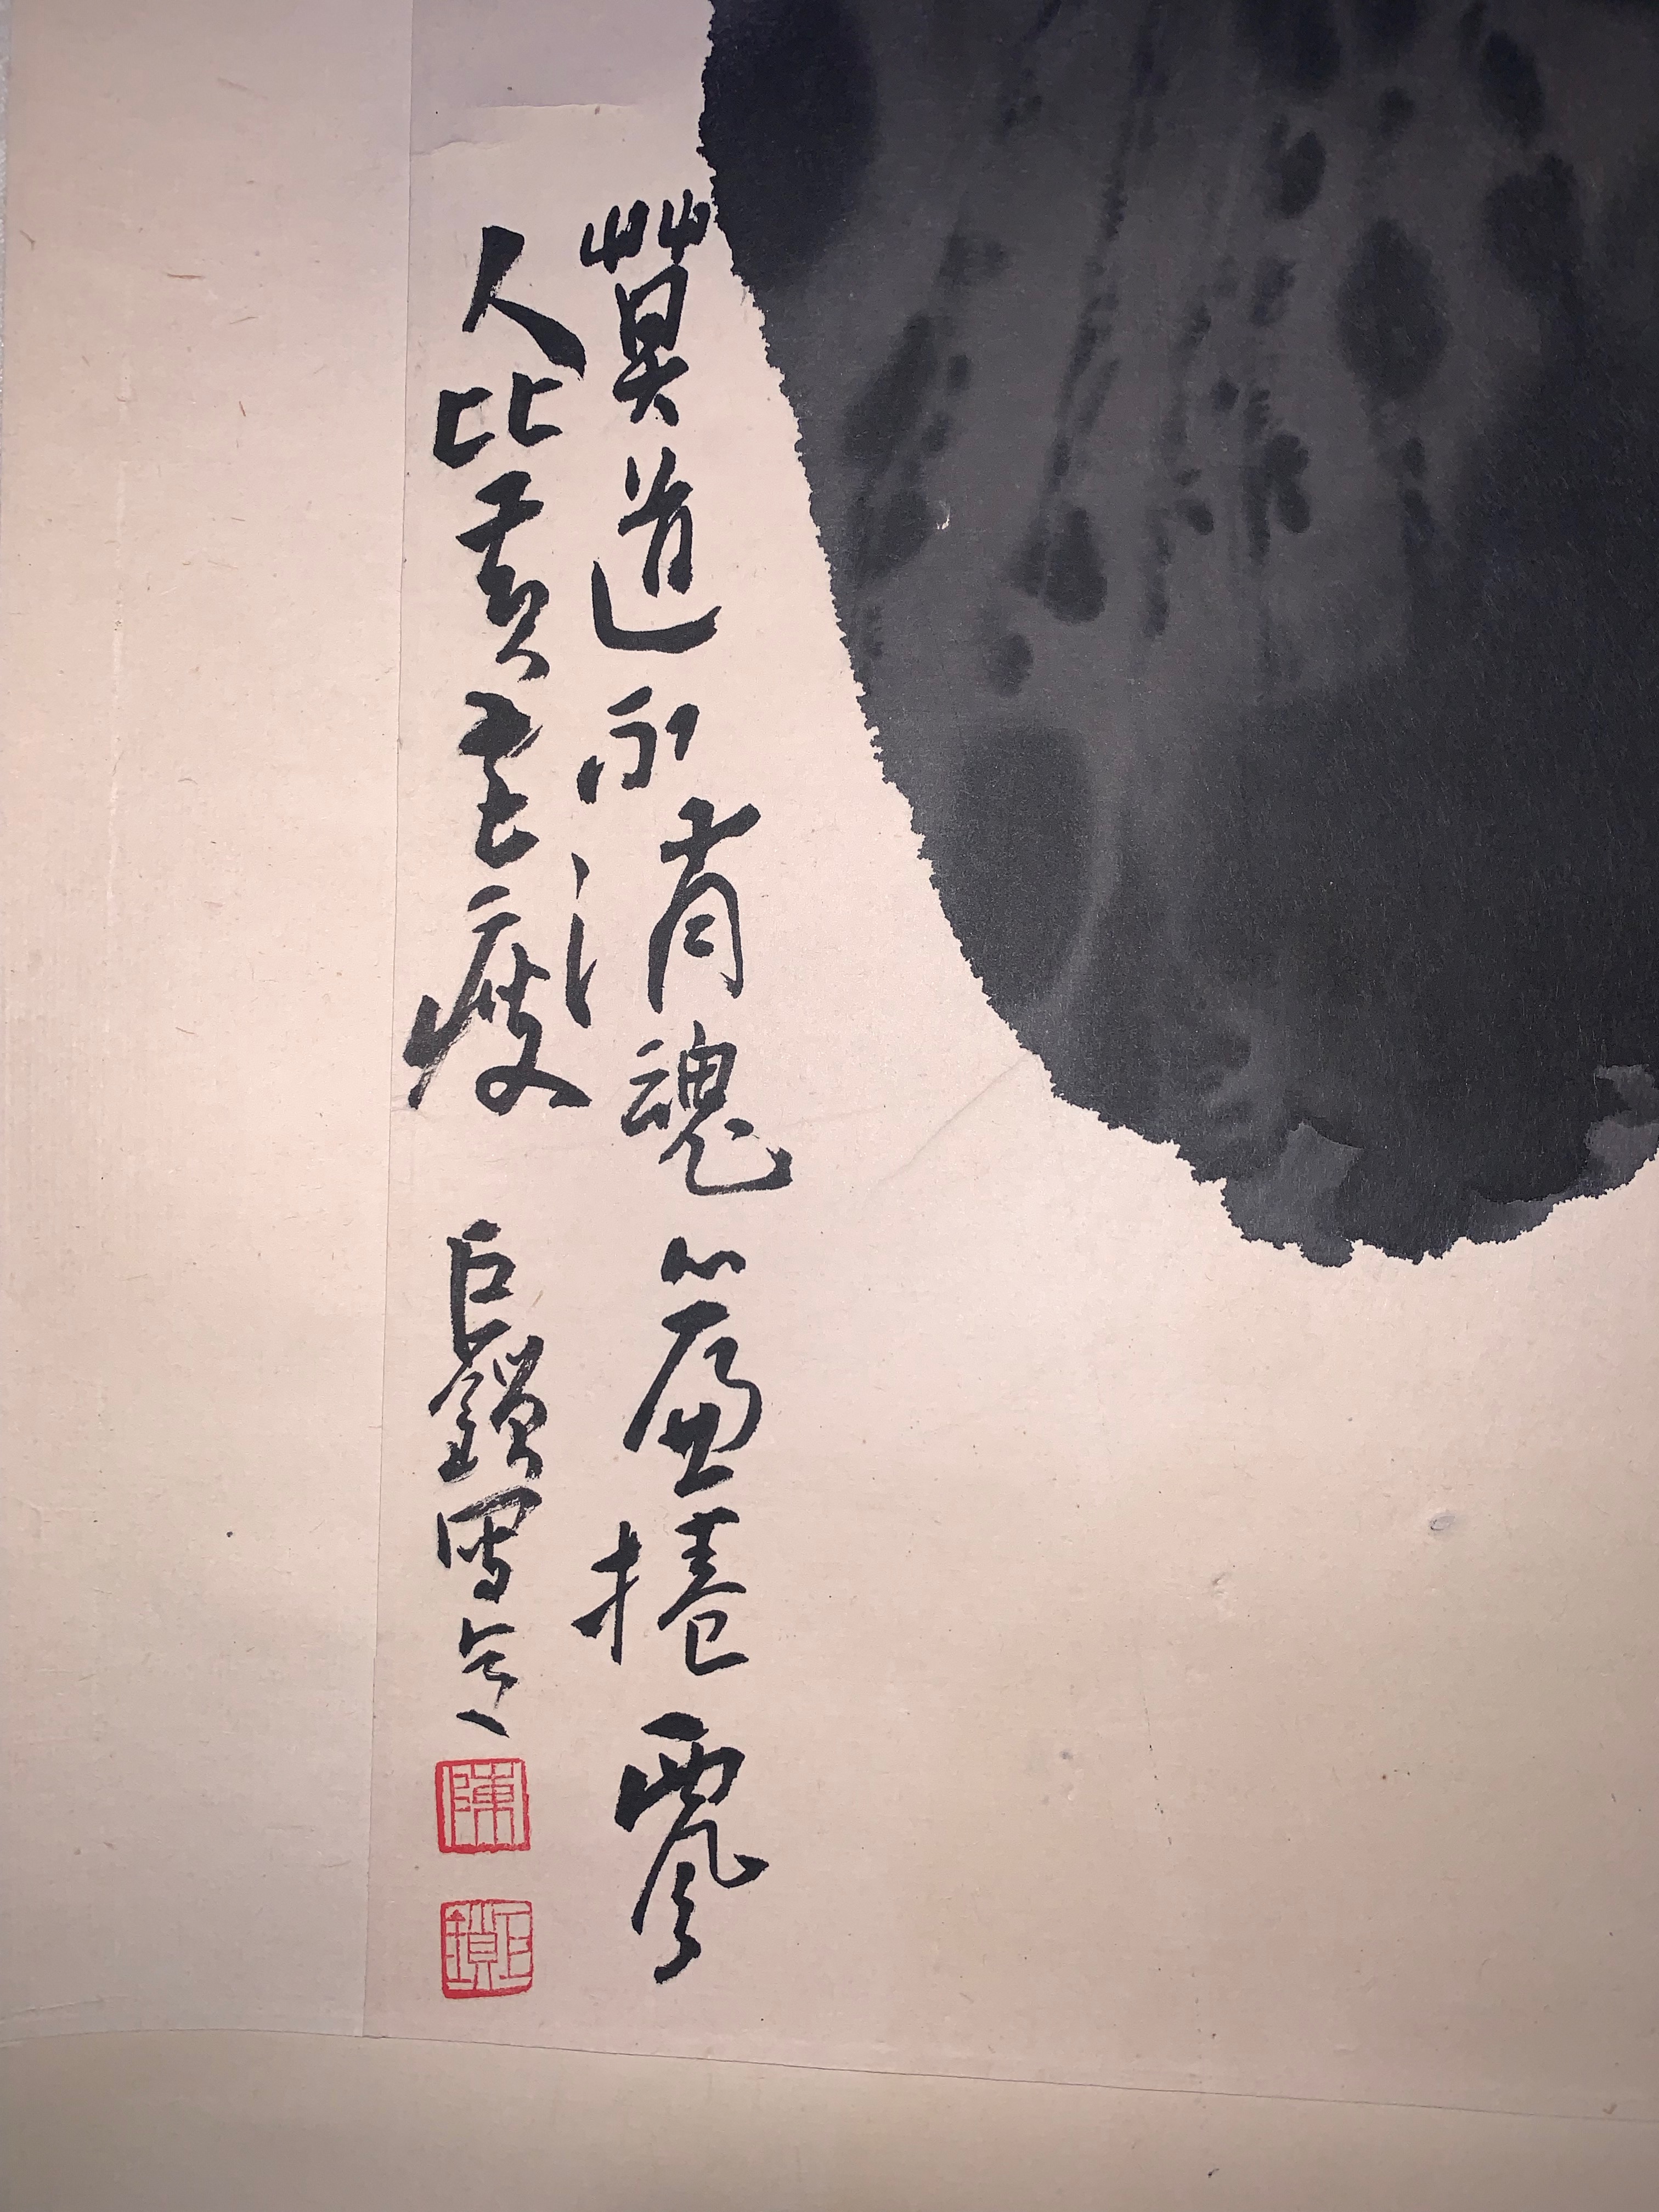 莫道不消魂簾捲西風
人比黃花瘦 巨鎖寫意
陳
巨鎖